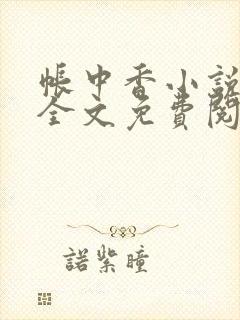 帳中香小說
全文免費閱
諾紫瞳